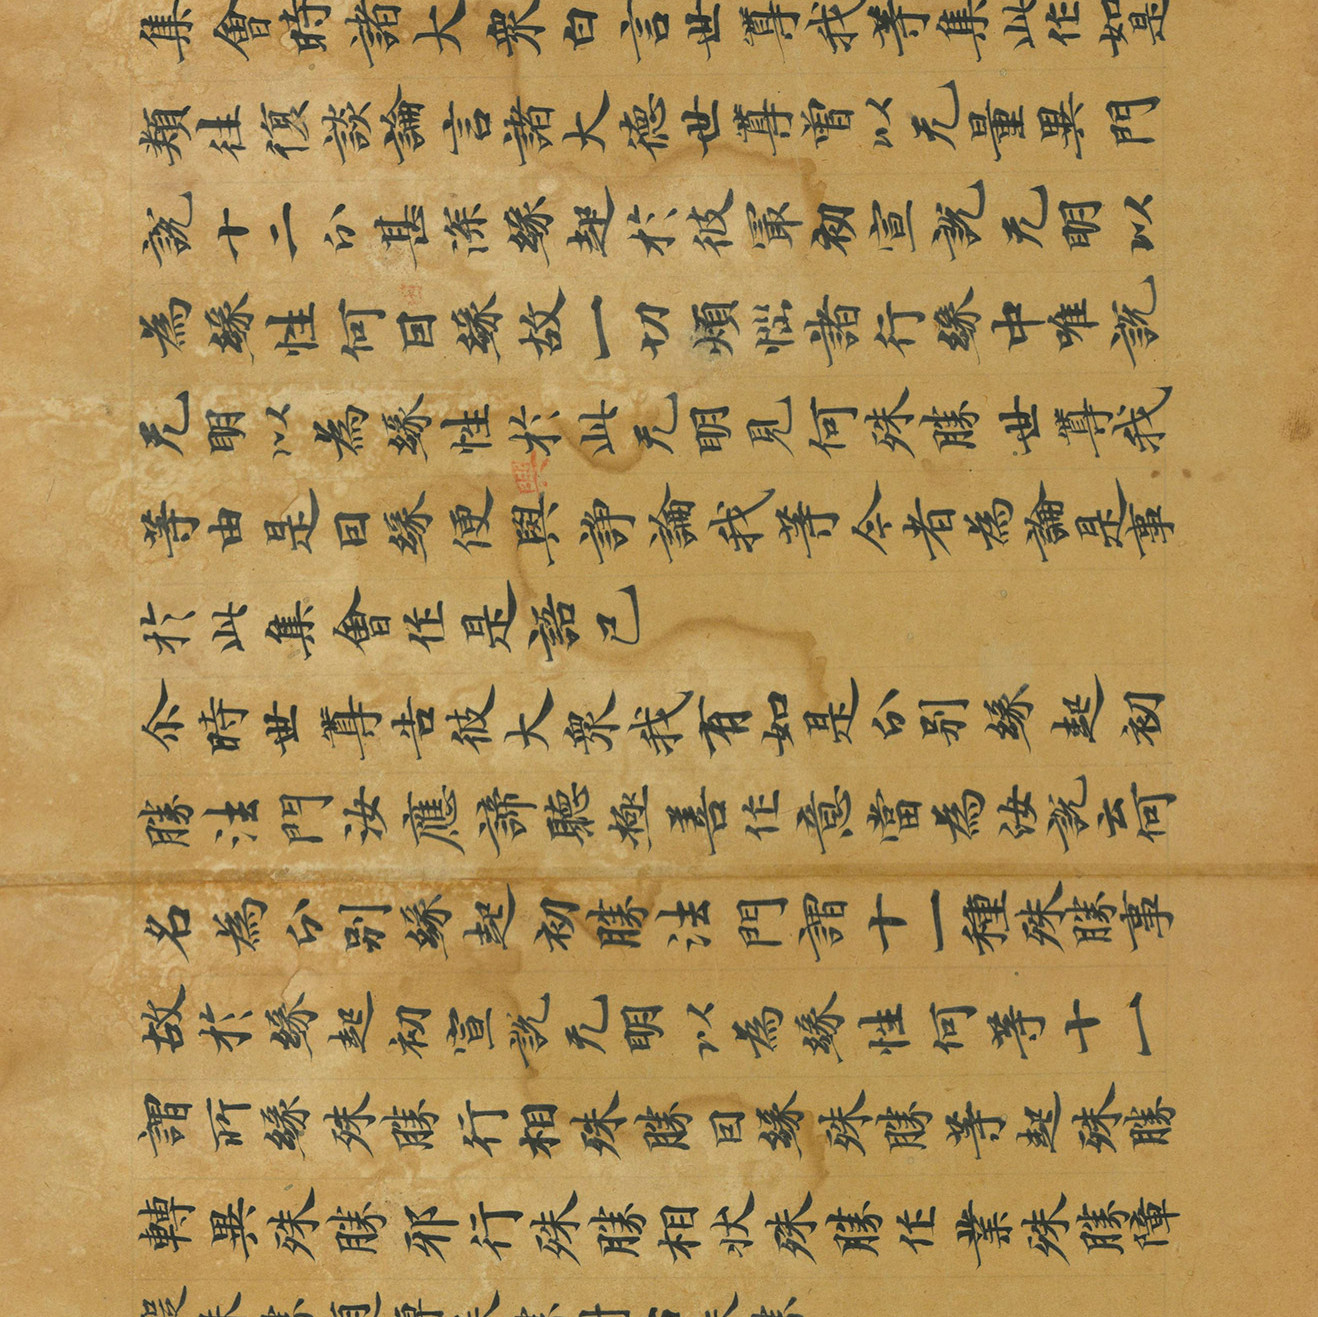 集會時諸大衆白言世尊我等集此作如是
類往復談論言諸大德世尊曾以无量異門
說十二分甚深緣起於彼㝡初宣說无明以
為緣性何囙緣故一切煩惱諸行緣中唯說
无明以為緣性於此无明見何殊勝世尊我
等由是囙緣便與諍論我等今者為論是事
於此集會作是語已
尒時世尊告彼大衆我有如是分別緣起初
勝法門汝應諦聽極善作意當為汝說云何
名為分別緣起初勝法門謂十一種殊勝事
故於緣起初宣說无明以為緣性何等十一
謂所緣殊勝行相殊勝囙緣殊勝等起殊勝
轉異殊勝邪行殊勝相狀殊勝作業殊勝障